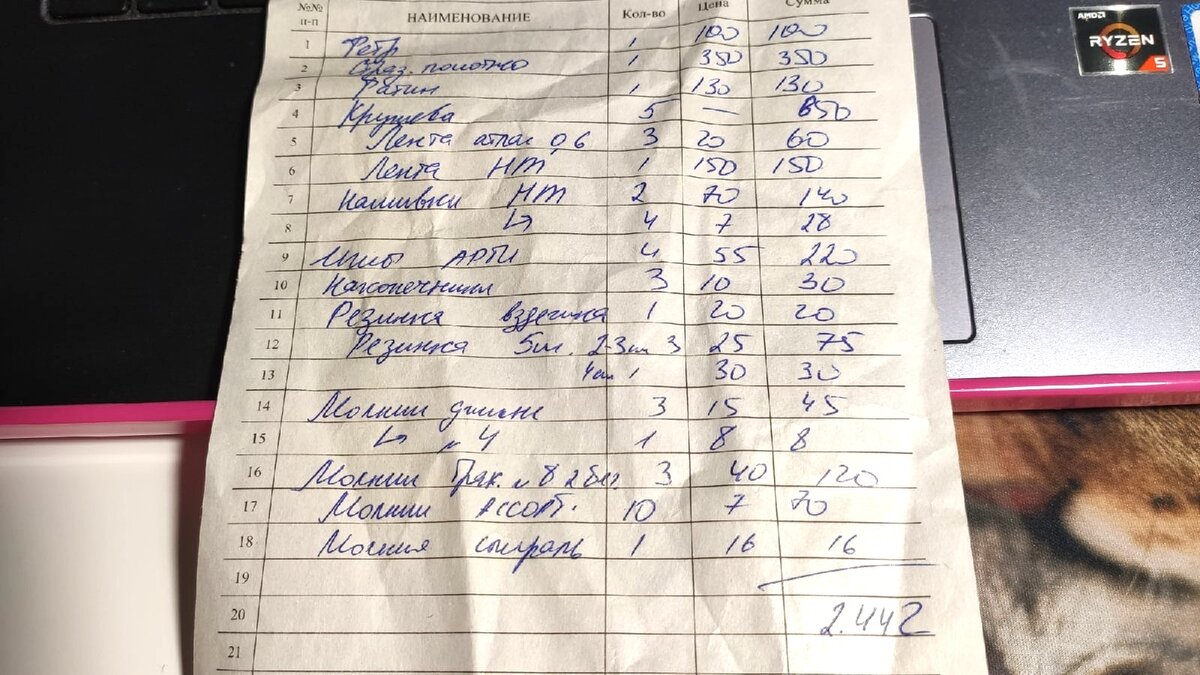 №№ НАИМЕНОВАНИЕ Кол-во Цена Сумма
п-п
1 Фетр 1 100 100
2 полотно 1 350 350
3 Фатин 1 130 130
4 Кружева 5 — 850
5 Лента атлас 0,6 3 20 60
6 Лента НТ 1 150 150
7 Нашивки НТ 2 70 140
8 ↳ 4 7 28
9 Иглы АРТИ 4 55 220
10 Наконечники 3 10 30
11 Резинка вздежка 1 20 20
12 Резинка 5м. 2-3см 3 25 75
13 4см 1 30 30
14 Молнии джинс 3 15 45
15 ↳ н 4 1 8 8
16 Молнии Трак. н 8 2 бег 3 40 120
17 Молнии Ассорт. 10 7 70
18 Молния спираль 1 16 16
19
20 2.442
21
AMD
RYZEN
5